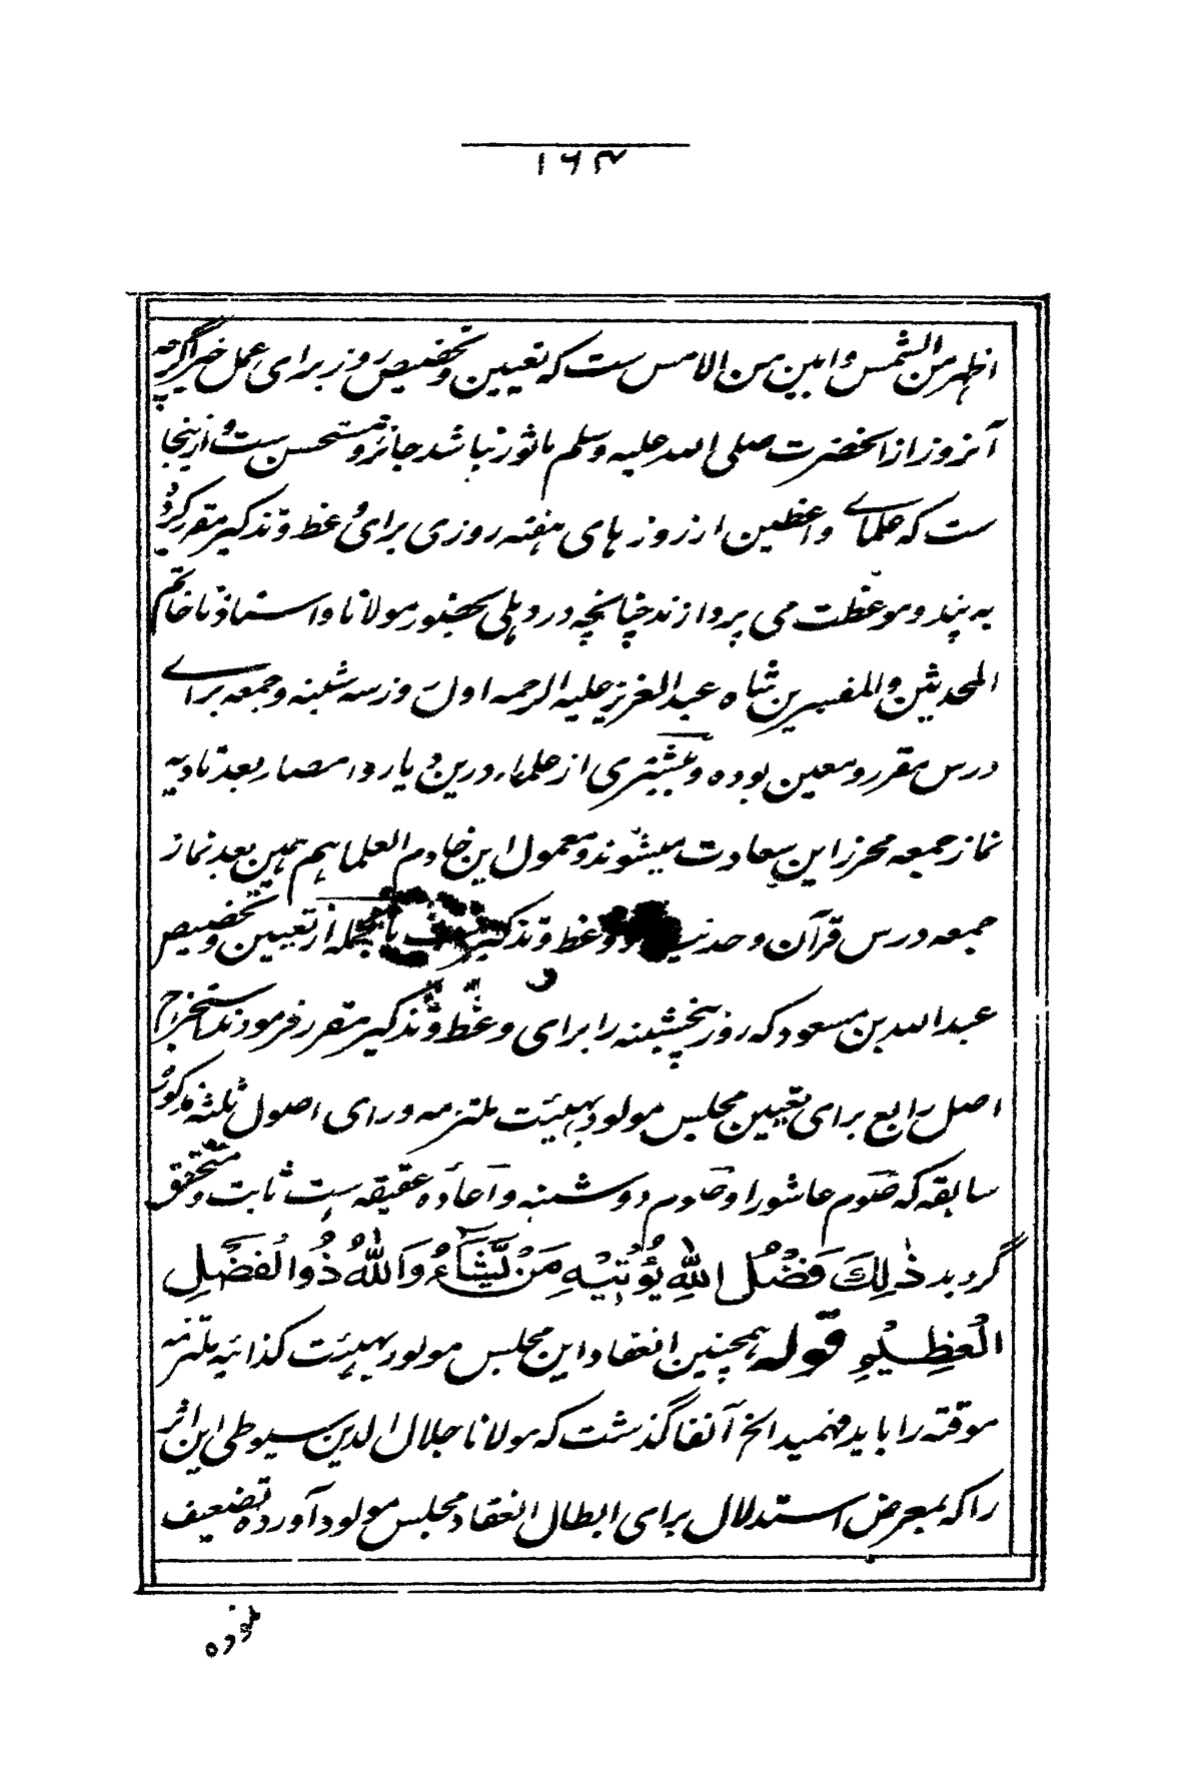 ۱۶۴
اظهر من الشمس و ابین من الامس ست که تعیین و تخصیص روز برای عمل خیر اگرچه
آنروز از آنحضرت صلی الله علیه وسلم ماثور نباشد جائز و مستحسن ست و ازینجا
ست که علمای واعظین از روز های هفته روزی برای وعظ و تذکیر مقرر کرده
به پند و موعظت می پردازند چنانچه در دهلی بحضور مولانا و استاذنا خاتم
المحدثین و المفسرین شاه عبد العزیز علیه الرحمه اول روز سه شنبه و جمعه برای
درس مقرر و معین بوده و بیشتری از علماء درین دیار و امصار بعد تادیه
نماز جمعه محرز این سعادت میشوند و معمول این خادم العلما هم همین بعد نماز
جمعه درس قرآن و حدیث و وعظ و تذکیر ست بالجمله از تعیین و تخصیص
عبد الله بن مسعود که روز پنجشنبه را برای وعظ و تذکیر مقرر فرمودند استخراج
اصل رابع برای تعیین مجلس مولود بهیئت ملتزمه ورای اصول ثلثه مذکوره
سابقه که صوم عاشورا و صوم دوشنبه و اعاده عقیقه ست ثابت و متحقق
گردید ذٰلِكَ فَضْلُ اللّٰهِ يُؤْتِيْهِ مَنْ يَّشَآءُ وَاللّٰهُ ذُوالْفَضْلِ
الْعَظِيْمِ قوله همچنین انعقاد این مجلس مولود بهیئت کذائیه ملتزمه
موقته را باید فهمید الخ آنفا گذشت که مولانا جلال الدین سیوطی این اثر
را که بمعرض استدلال برای ابطال انعقاد مجلس مولود آورده تضعیف
نموده